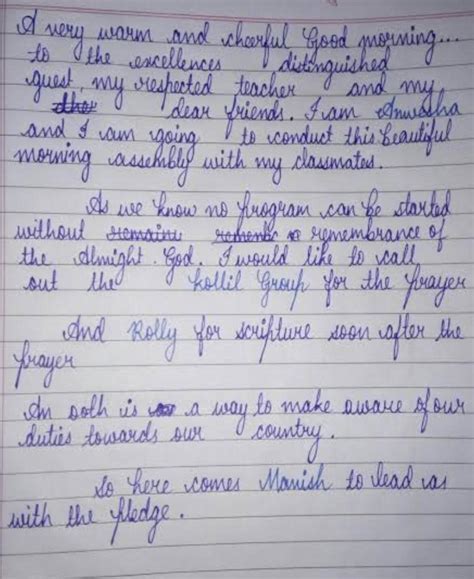 A very warm and cheerful Good morning...
to the excellences distinguished
guest, my respected teacher and my
dear friends. I am Anwesha
and I am going to conduct this beautiful
morning assembly with my classmates.
As we know no program can be started
without remembrance of
the Almight. God. I would like to call
out the Kollil Group for the prayer
And Rolly for scripture soon after the
prayer
An ooth is a way to make aware of our
duties towards our country.
so here comes Manish to lead us
with the pledge.